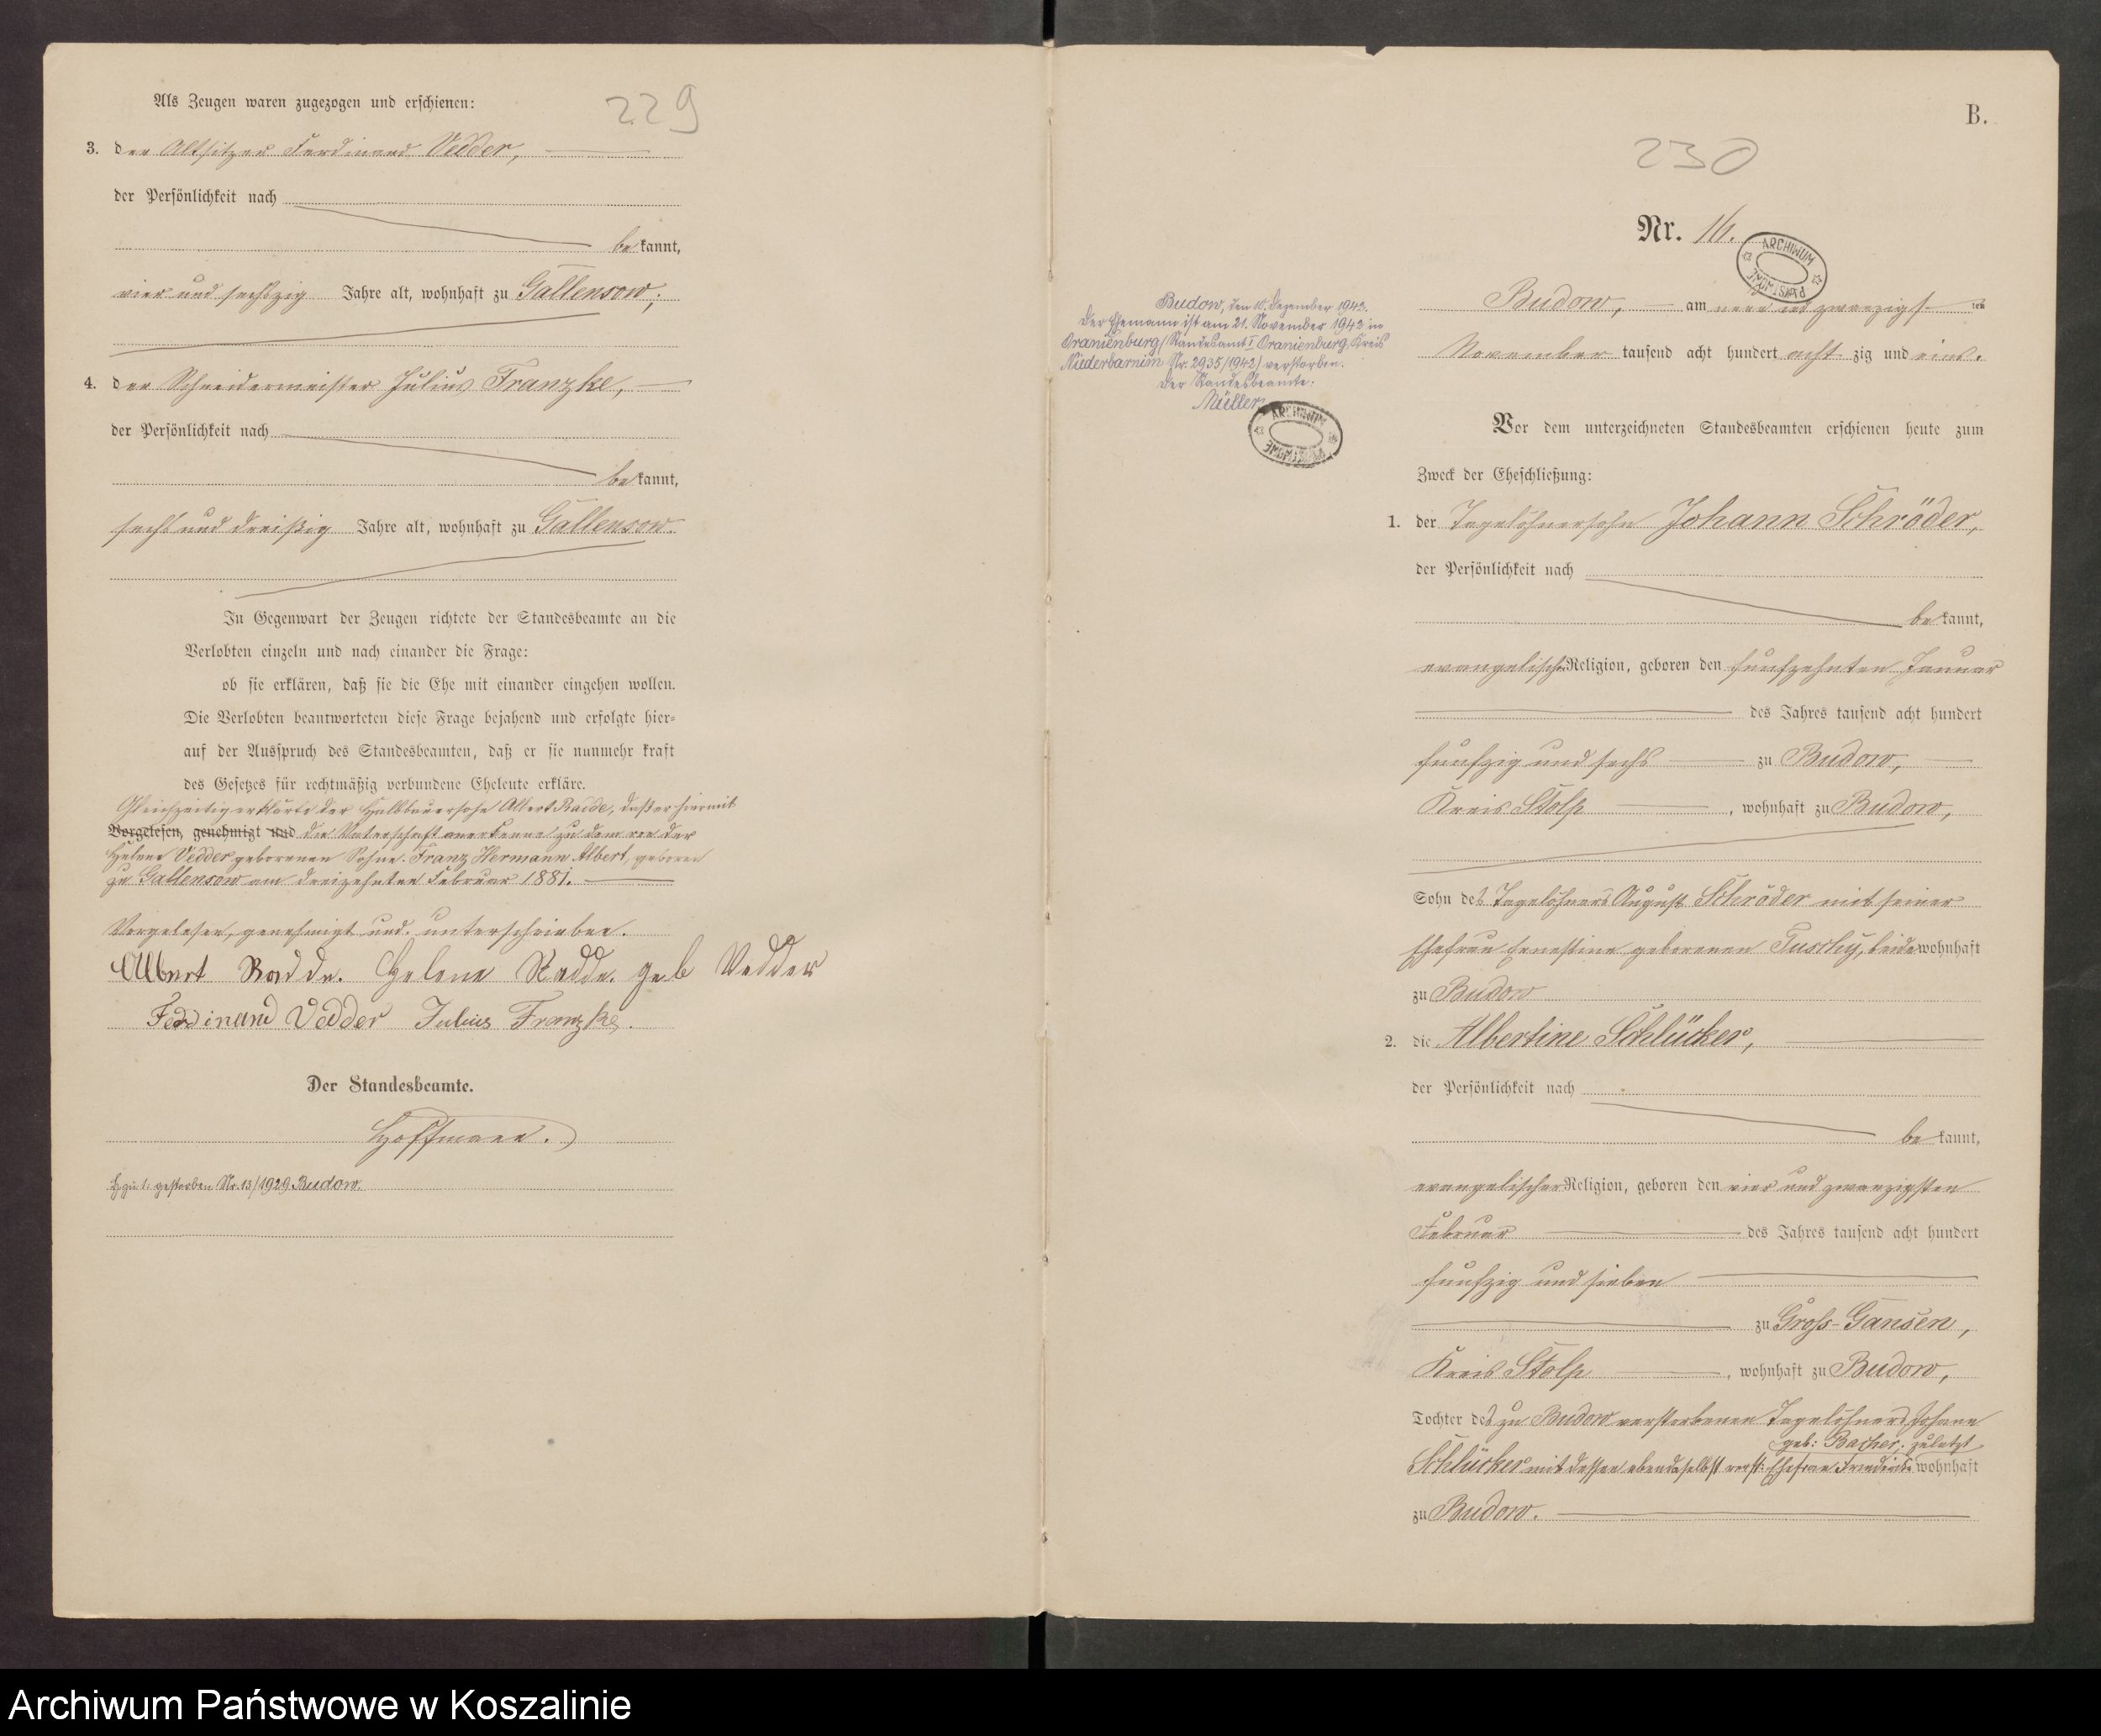 229
Als Zeugen waren zugezogen und erschienen:
3. der Altsitzer Ferdinand Vedder,
der Persönlichkeit nach
be kannt,
vier und sechszig Jahre alt, wohnhaft zu Gallensow;
4. der Schneidermeister Julius Franzke,
der Persönlichkeit nach
be kannt,
sechs und dreißig Jahre alt, wohnhaft zu Gallensow.
In Gegenwart der Zeugen richtete der Standesbeamte an die
Verlobten einzeln und nach einander die Frage:
ob sie erklären, daß sie die Ehe mit einander eingehen wollen.
Die Verlobten beantworteten diese Frage bejahend und erfolgte hier-
auf der Ausspruch des Standesbeamten, daß er sie nunmehr kraft
des Gesetzes für rechtmäßig verbundene Eheleute erkläre.
Gleichzeitig erklärte der Halbbauersohn Albert Radde, daß er hiermit
Vorgelesen, genehmigt und die Vaterschaft anerkenne zu dem von der
Helene Vedder geborenen Sohne. Franz Hermann Albert, geboren
zu Gallensow am dreizehnten Februar 1881.
Vorgelesen, genehmigt und unterschrieben.
Albert Radde. Helene Radde. geb Vedder
Ferdinand Vedder Julius Franzke.
Der Standesbeamte.
Hoffmann.
gestorben Nr. 13/1929 Budow.
B.
230
Nr. 16.
ARCHIWUM
Budow, am neun und zwanzigs ten
November tausend acht hundert acht zig und eins.
Budow, den 10. Dezember 1943.
Der Ehemann ist am 21. November 1942 in
Oranienburg (Standesamt I Oranienburg, Kreis
Niederbarnim Nr. 2935/1942) verstorben.
Der Standesbeamte.
Müller
ARCHIWUM
Vor dem unterzeichneten Standesbeamten erschienen heute zum
Zweck der Eheschließung:
1. der Tagelöhnersohn Johann Schröder,
der Persönlichkeit nach
be kannt,
evangelischer Religion, geboren den fünfzehnten Januar
des Jahres tausend acht hundert
fünfzig und sechs zu Budow,
Kreis Stolp, wohnhaft zu Budow,
Sohn des Tagelöhners August Schröder mit seiner
Ehefrau Ernestine geborenen Tuschy, beide wohnhaft
zu Budow
2. die Albertine Schlücker,
der Persönlichkeit nach
be kannt,
evangelischer Religion, geboren den vier und zwanzigsten
Februar des Jahres tausend acht hundert
fünfzig und sieben
zu Gross-Gansen,
Kreis Stolp, wohnhaft zu Budow,
Tochter des zu Budow verstorbenen Tagelöhners Johann
geb: Bacher; zuletzt
Schlücker mit dessen ebendaselbst verst: Ehefrau Friederike wohnhaft
zu Budow.
Archiwum Państwowe w Koszalinie